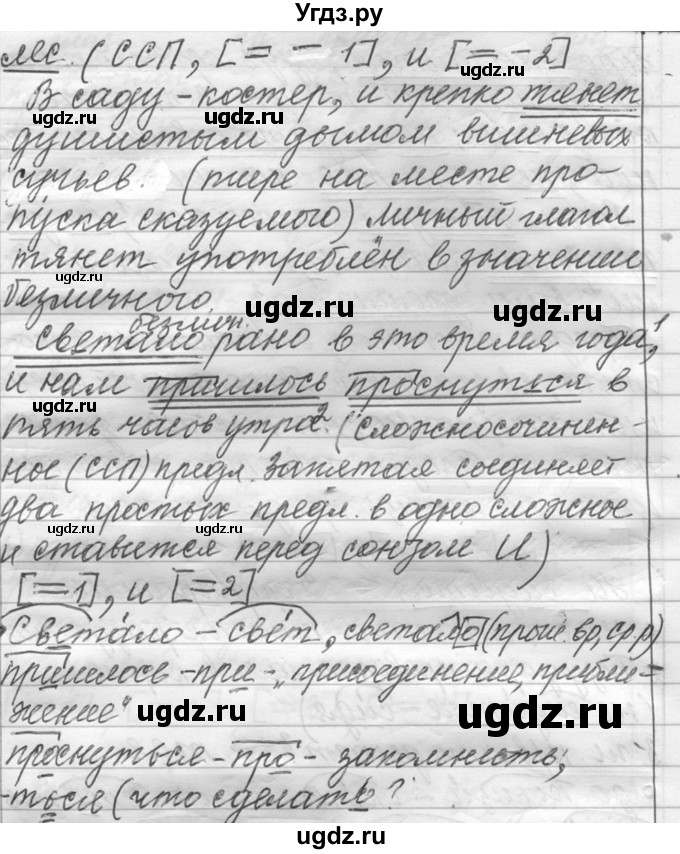 Угдз.ру
лес. (ССП, [= - 1], и [= -2]
ugdz.ru ugdz.ru
В саду - костер, и крепко тянет
ugdz.ru
душистым дымом вишневых
сучьев. (тире на месте про-
пуска сказуемого) личный глагол
тянет употреблён в значении
ugdz.ru
безличного.
ugdz.ru ugdz.ru
безлич.
Светало рано в это время года,1
и нам пришлось проснуться в
ugdz.ru
пять часов утра2. (сложносочинен-
ное (ССП) предл. Запятая соединяет
два простых предл. в одно сложное
ugdz.ru
и ставится перед союзом И)
ugdz.ru
[=1], и [=2]
Светало - свет, светало (прош. вр, ср. р)
ugdz.ru
пришлось - при - „присоединение, прибли-
жение"
ugdz.ru ugdz.ru
проснуться - про - запомнить;
-ться (что сделать?
ugdz.ru
ugdz.ru